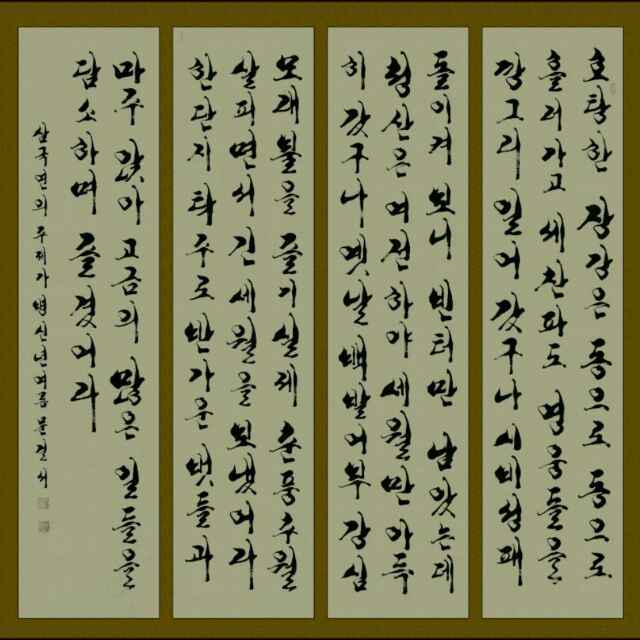 호탕한 장강은 동으로 동으로
흘러가고 세찬 파도 영웅들을
깡그리 일어 갔구나 시비 성패
돌이켜 보니 빈 터만 남았는데
청산은 여전하야 세월만 아득
히 갔구나 옛날 백발 어부 강심
모래불을 즐기실제 춘풍추월
살피면서 긴 세월을 보냈어라
한 단지 탁주로 반가운 벗들과
마주 앉아 고금의 많은 일들을
담소하며 즐겼어라
삼국연의 주제가 병신년 여름